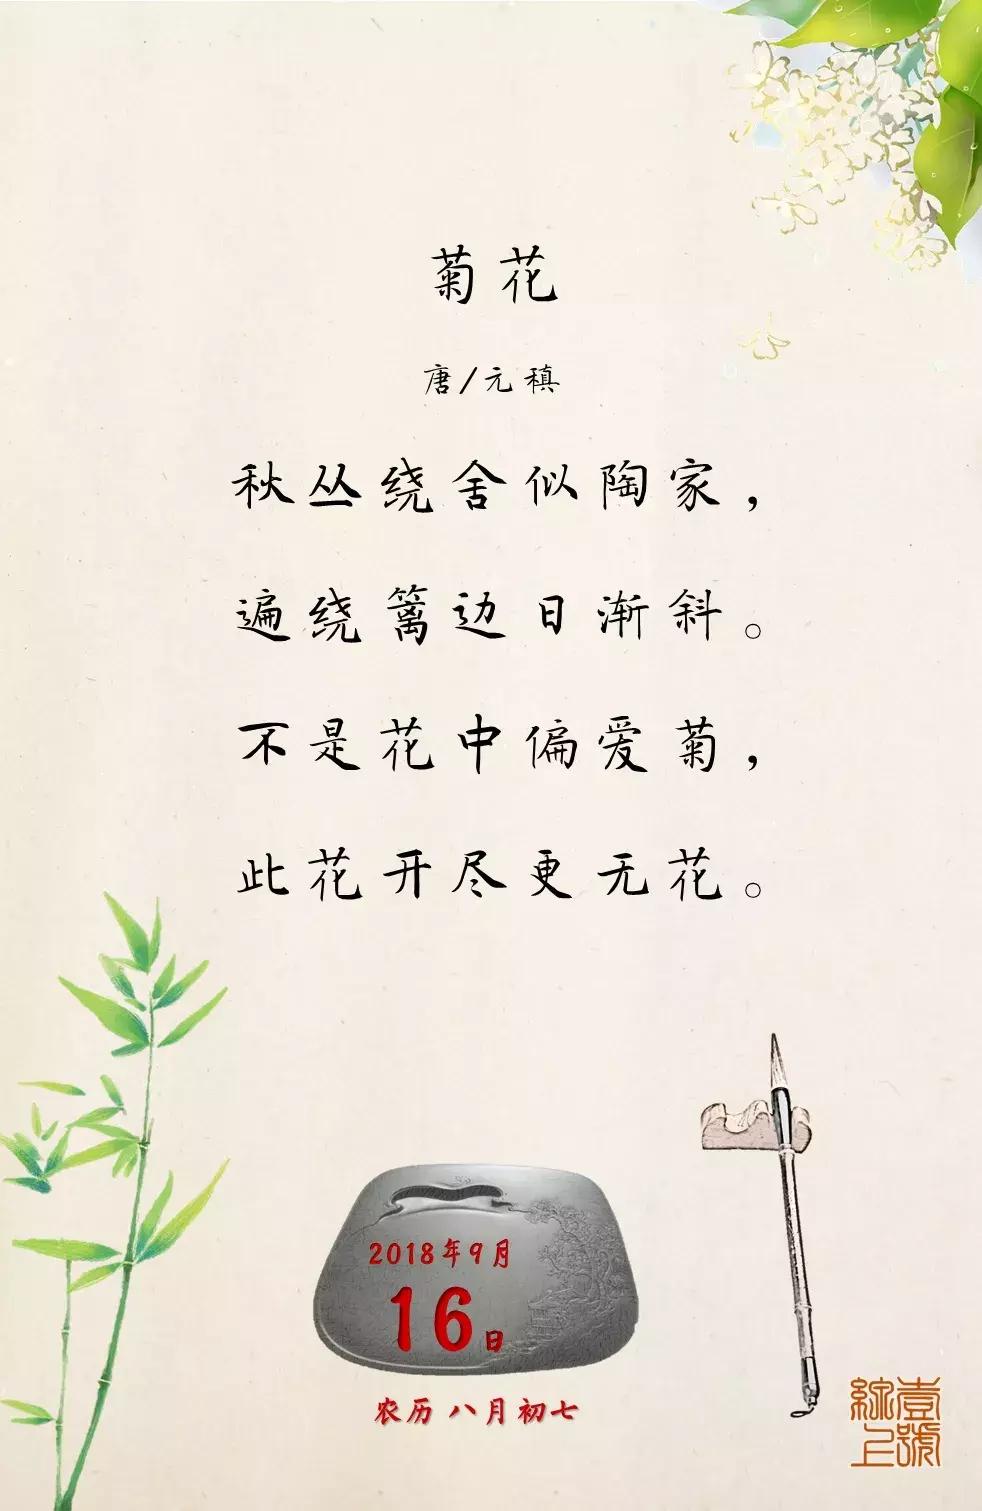 菊花
唐/元稹
秋丛绕舍似陶家，
遍绕篱边日渐斜。
不是花中偏爱菊，
此花开尽更无花。
2018年9月
16日
农历 八月初七